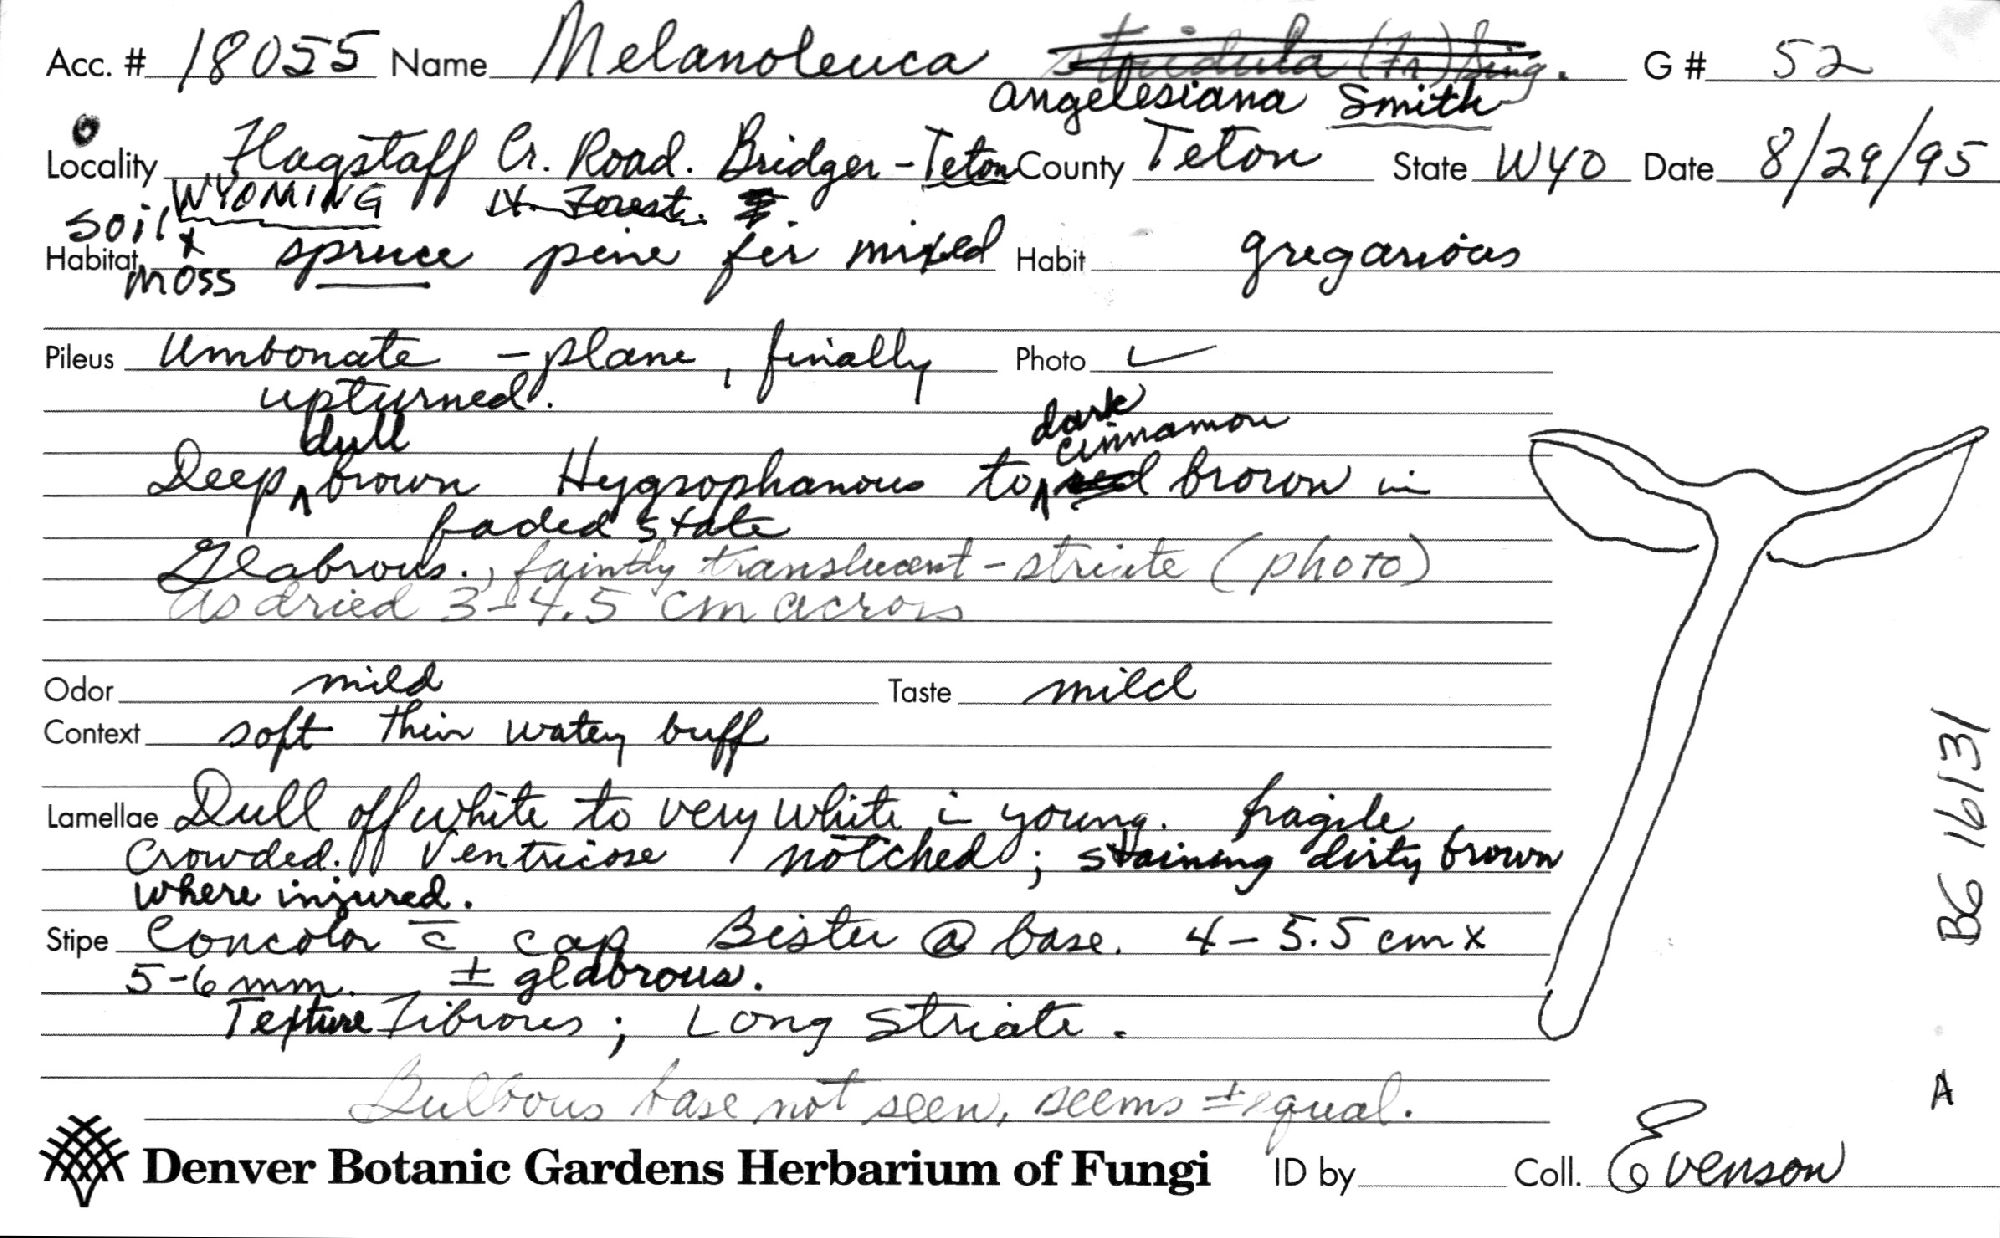 Acc. # 18055 Name Melanoleuca stridula (Fr) Sing. G # 52
angelesiana Smith
Locality Flagstaff Cr. Road. Bridger-Teton County Teton State WYO Date 8/29/95
WYOMING N. Forest.
soil +
Habitat moss spruce pine fir mixed Habit gregarious
Pileus Umbonate - plane, finally Photo ✓
upturned.
dull dark cinnamon
Deep ^ brown Hygrophanous to ^ red brown in
faded state
Glabrous., faintly translucent-striate (photo)
as dried 3-4.5 cm across
Odor mild Taste mild
Context soft thin watery buff
Lamellae Dull off white to very white in young. fragile
Crowded. Ventricose notched; staining dirty brown
where injured.
Stipe Concolor c̄ cap Bister @ base. 4-5.5 cm x
5-6 mm. ± glabrous.
Texture Fibrous; Long striate.
Bulbous base not seen, seems ± equal.
Denver Botanic Gardens Herbarium of Fungi ID by Coll. Evenson
BG 16131
A